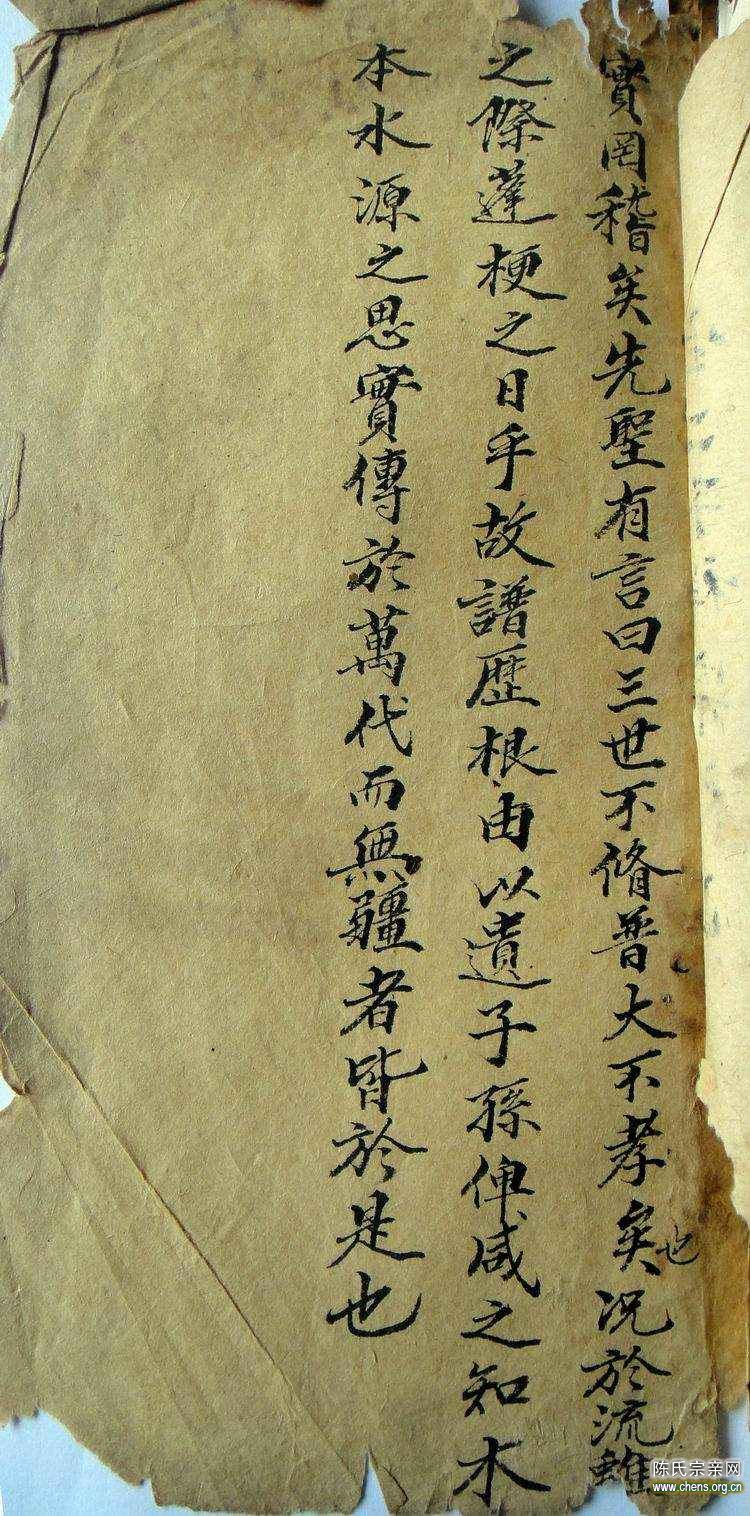 實罔稽矣先聖有言曰三世不脩普大不孝矣也況於流離
之際蓬梗之日乎故譜歷根由以遺子孫俾咸之知木
本水源之思實傳於萬代而無疆者皆於是也
陈氏宗亲网
www.chens.org.cn